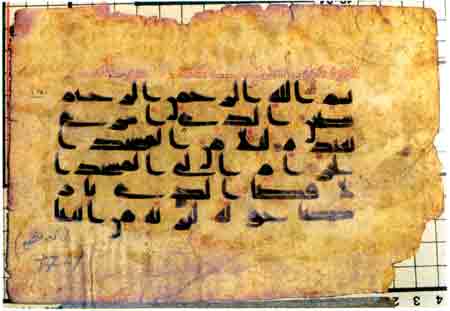 بسم الله الرحمن الرحيم
سبحن الذي اسرى
بعبده ليلا من المسجد ا
لحرام الى المسجد ا
لاقصا الذي بار
كنا حوله لنريه من ايتنا